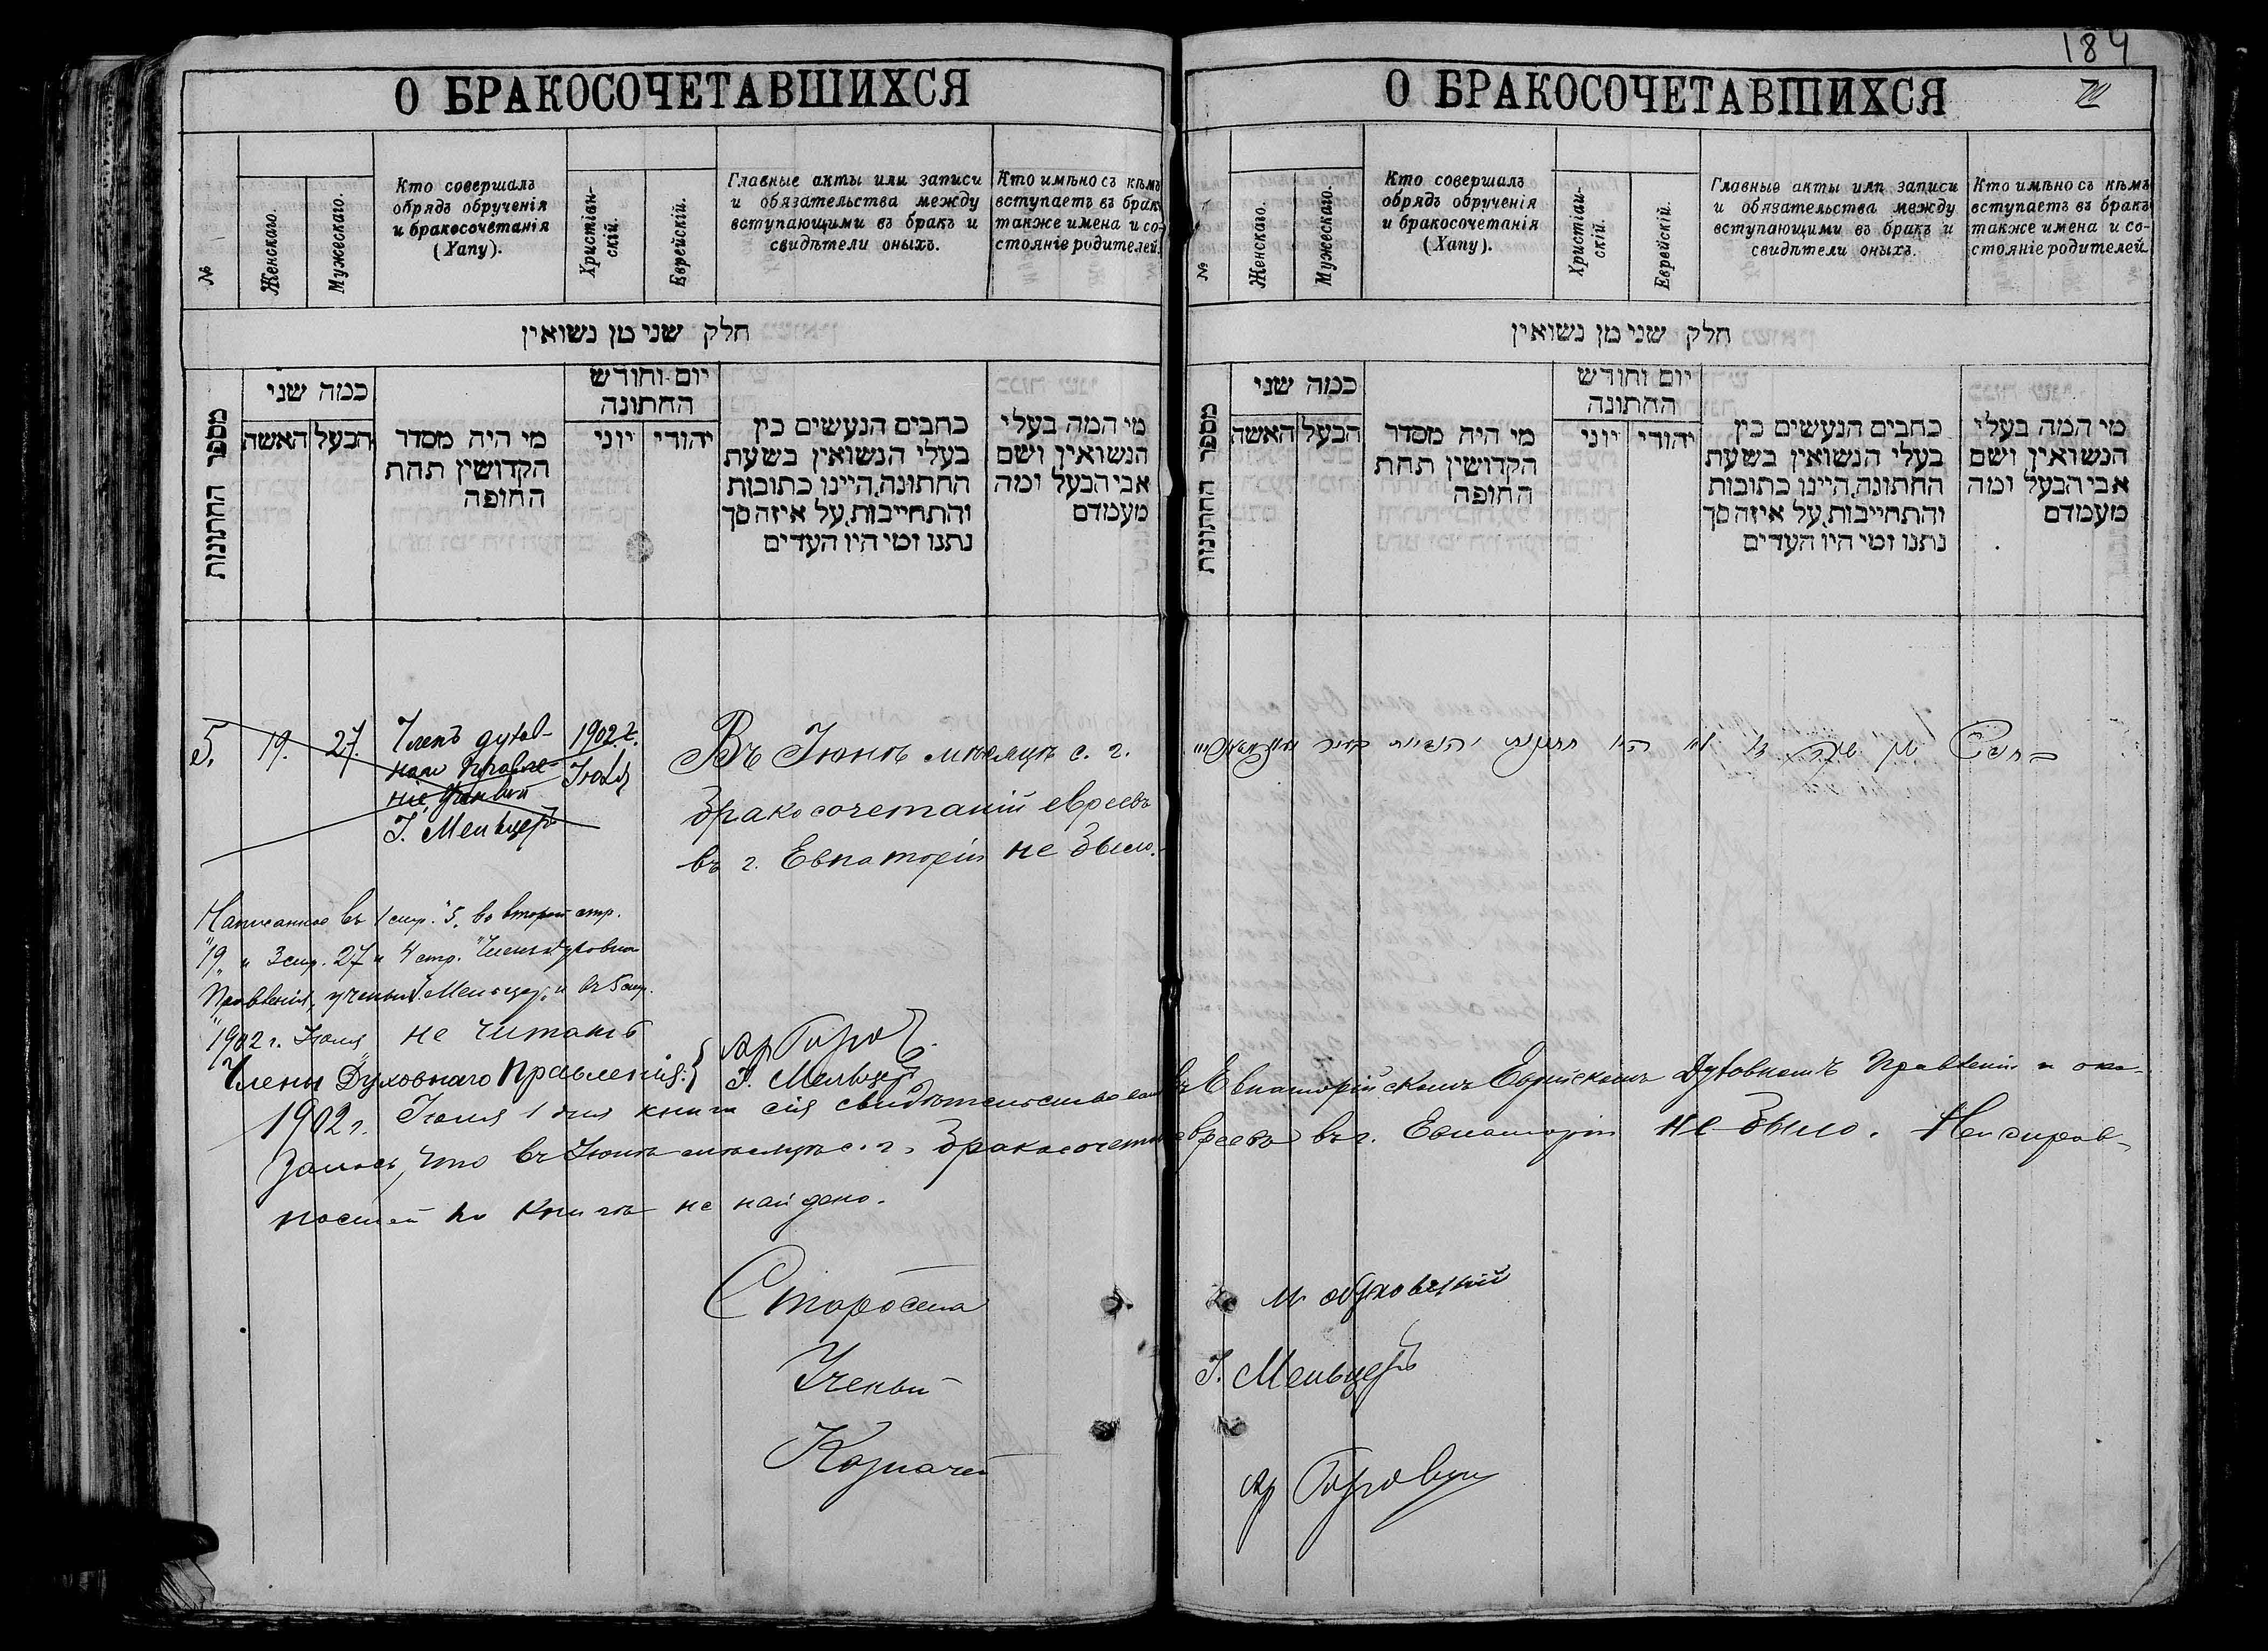 184
О БРАКОСОЧЕТАВШИХСЯ
№
Женскаго.
Мужескаго.
Кто совершалъ
обрядъ обрученія
и бракосочетанія
(Хапу).
Христіан-
скій.
Еврейскій.
Главные акты или записи
и обязательства между
вступающими въ бракъ и
свидѣтели оныхъ.
Кто имѣно съ кѣмъ
вступаетъ въ бракъ
также имена и со-
стояніе родителей.
חלק שני מן נשואין
מספר החתונות
כמה שני
האשה
הבעל
מי היה מסדר
הקדושין תחת
החופה
יום וחודש
החתונה
יוני
יהודי
כתבים הנעשים בין
בעלי הנשואין בשעת
החתונה, היינו כתובות
והתחייבות, על איזה סך
נתנו ומי היו העדים
מי המה בעלי
הנשואין ושם
אבי הבעל ומה
מעמדם
5.
19.
27.
Членъ духов-
наго Правле-
нія, Ученый
І. Мельцеръ
1902 г.
Іюля
Въ Іюнѣ мѣсяцѣ с. г.
бракосочетаній евреевъ
въ г. Евпаторіи не было.
Написанное въ 1 стр. "5, во второй стр.
"19 и 3 стр. 27 и 4 стр. "Членъ духовна
Правленія, ученый І. Мельцеръ, и въ 5 стр.
"1902 г. Іюля не читать
Члены Духовнаго Правленія:
І. Мельцеръ
О БРАКОСОЧЕТАВШИХСЯ
№
Женскаго.
Мужескаго.
Кто совершалъ
обрядъ обрученія
и бракосочетанія
(Хапу).
Христіан-
скій.
Еврейскій.
Главные акты или записи
и обязательства между
вступающими въ бракъ и
свидѣтели оныхъ.
Кто имѣно съ кѣмъ
вступаетъ въ бракъ
также имена и со-
стояніе родителей
חלק שני מן נשואין
מספר החתונות
כמה שני
האשה
הבעל
מי היה מסדר
הקדושין תחת
החופה
יום וחודש
החתונה
יוני
יהודי
כתבים הנעשים בין
בעלי הנשואין בשעת
החתונה, היינו כתובות
והתחייבות, על איזה סך
נתנו ומי היו העדים
מי המה בעלי
הנשואין ושם
אבי הבעל ומה
מעמדם
1902 г. Іюля 1 дня книга сія свидѣтельствована въ Евпаторійскомъ Еврейскомъ Духовномъ Правленіи и ока-
залось, что въ Іюнѣ мѣсяцѣ с. г. бракосочет евреевъ въ г. Евпаторіи не было. Неисправ-
ностей по книгѣ не найдено.
Староста М.
Ученый І. Мельцеръ
Казначей